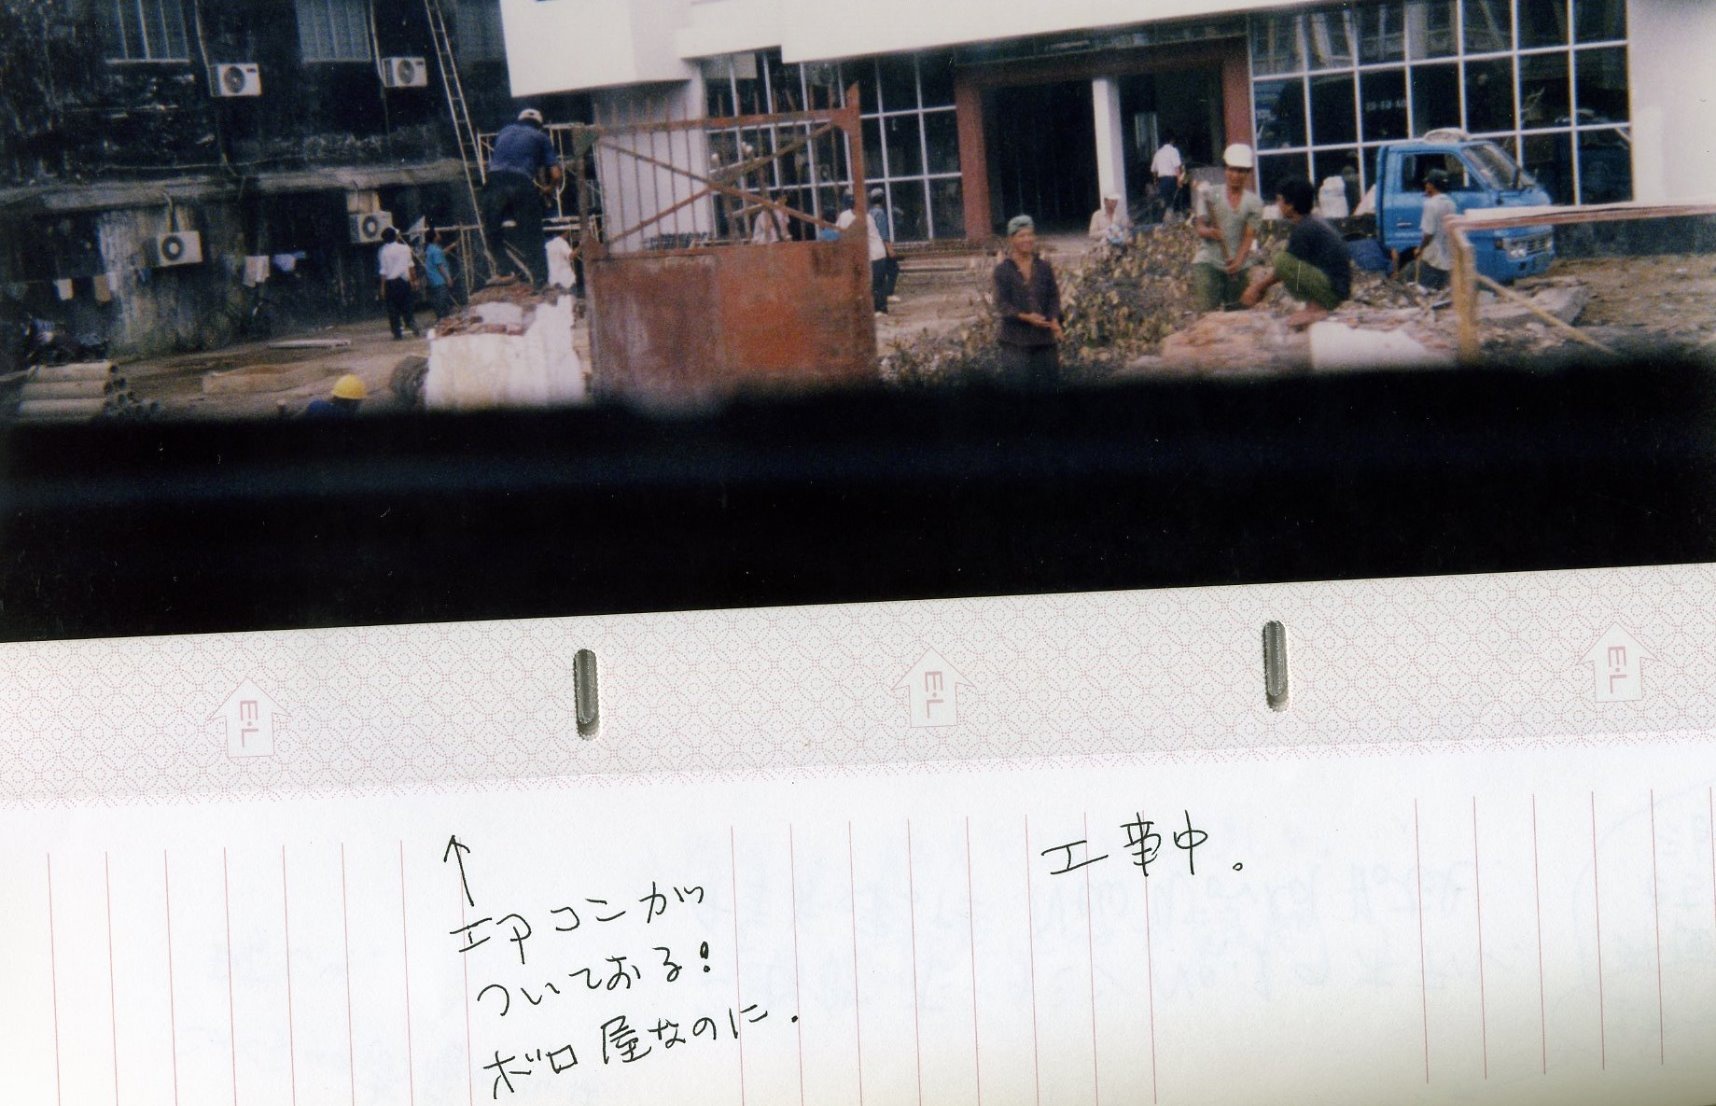 E・L
E・L
E・L
工事中。
↑
エアコンがっ
ついておる!
ボロ屋なのに.